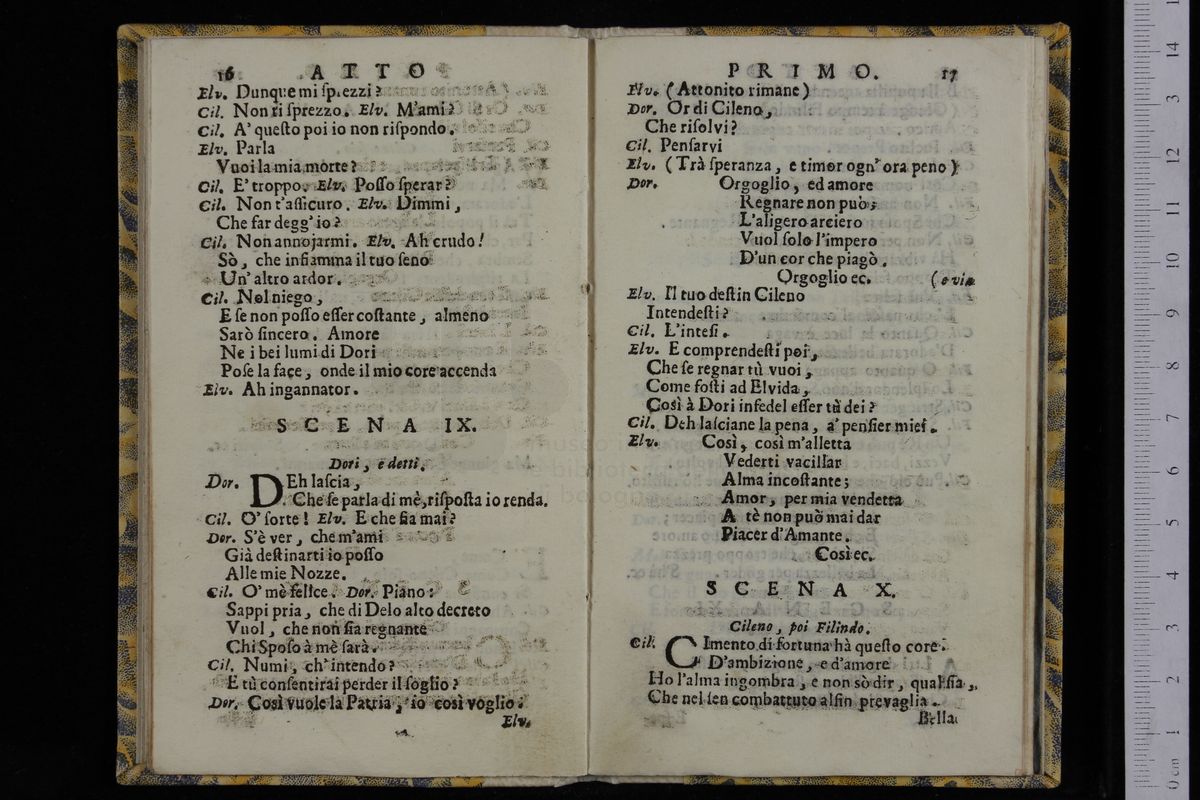 16 ATTO
Elv. Dunque mi sprezzi?
Cil. Non ti sprezzo. Elv. M'ami?
Cil. A' questo poi io non rispondo.
Elv. Parla
Vuoi la mia morte?
Cil. E' troppo. Elv. Posso sperar?
Cil. Non t'assicuro. Elv. Dimmi,
Che far degg' io?
Cil. Non annojarmi. Elv. Ah crudo!
Sò, che infiamma il tuo seno
Un' altro ardor.
Cil. Nol niego,
E se non posso esser costante, almeno
Sarò sincero. Amore
Ne i bei lumi di Dori
Pose la face, onde il mio core accenda
Elv. Ah ingannator.
SCENA IX.
Dori, e detti.
Dor. DEh lascia,
Che se parla di mè, risposta io renda.
Cil. O' sorte! Elv. E che fia mai?
Dor. S'è ver, che m'ami
Già destinarti io posso
Alle mie Nozze.
Cil. O' mè felice. Dor. Piano:
Sappi pria, che di Delo alto decreto
Vuol, che non sia regnante
Chi Sposo à mè sarà.
Cil. Numi, ch' intendo?
E tù consentirai perder il soglio?
Dor. Così vuole la Patria, io così voglio.
Elv.
PRIMO. 17
Elv. (Attonito rimane)
Dor. Or di Cileno,
Che risolvi?
Cil. Pensarvi
Elv. (Trà speranza, e timor ogn' ora peno)
Dor. Orgoglio, ed amore
Regnare non può;
L'aligero arciero
Vuol solo l'impero
D'un cor che piagò.
Orgoglio ec. (e via
Elv. Il tuo destin Cileno
Intendesti?
Cil. L'intesi.
Elv. E comprendesti poi,
Che se regnar tù vuoi,
Come fosti ad Elvida,
Così à Dori infedel esser tù dei?
Cil. Deh lasciane la pena, a' pensier miei.
Elv. Così, così m'alletta
Vederti vacillar
Alma incostante;
Amor, per mia vendetta
A tè non può mai dar
Piacer d'Amante.
Così ec.
SCENA X.
Cileno, poi Filindo.
Cil. CImento di fortuna hà questo core.
D'ambizione, e d'amore
Ho l'alma ingombra, e non sò dir, qual sia,
Che nel sen combattuto alfin prevaglia.
Bella